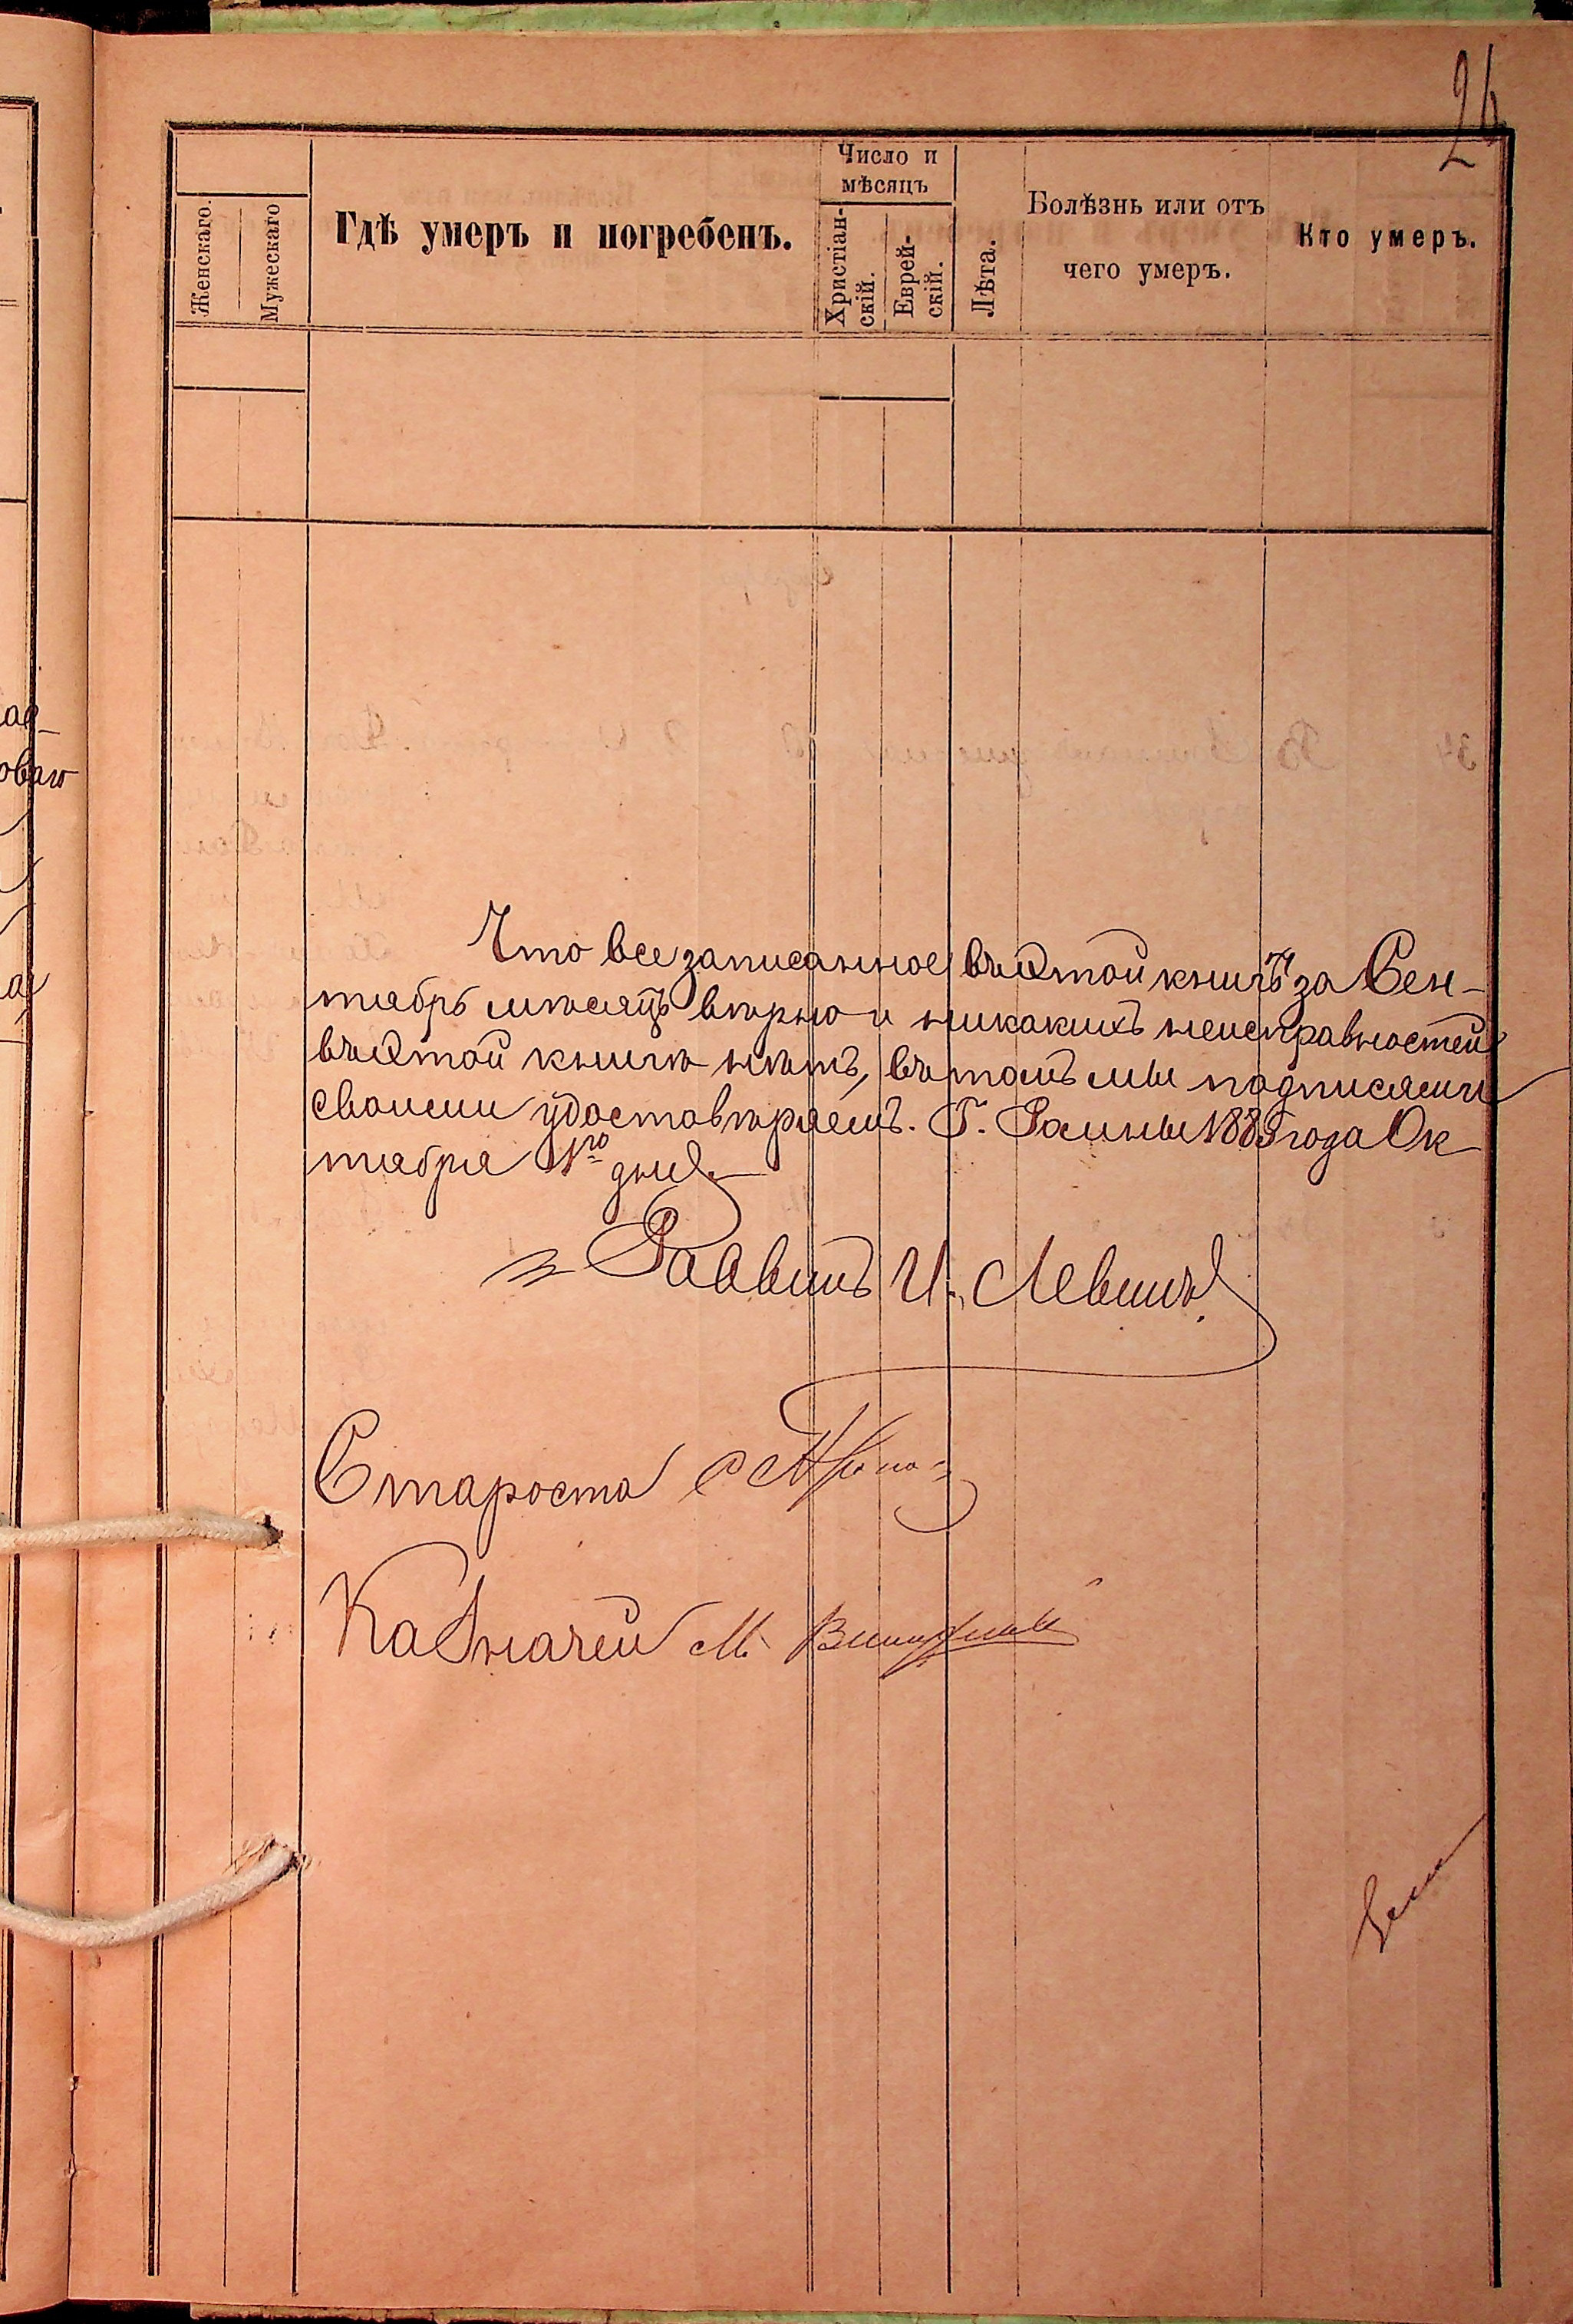 26
Число и
мѣсяцъ
Женскаго.
Мужескаго
Гдѣ умеръ и погребенъ.
Христіан-
скій.
Еврей-
скій.
Лѣта.
Болѣзнь или отъ
чего умеръ.
Кто умеръ.
Что все записанное въ этой книгѣ за Сен-
тябрь мѣсяцъ вѣрно и никакихъ неисправностей
въ этой книгѣ нѣтъ, въ томъ мы подписями
своими удостовѣряемъ. Г. Ромны 1885 года Ок
тября 1го дня.
Раввинъ И. Левинъ
Староста
Казначей М.